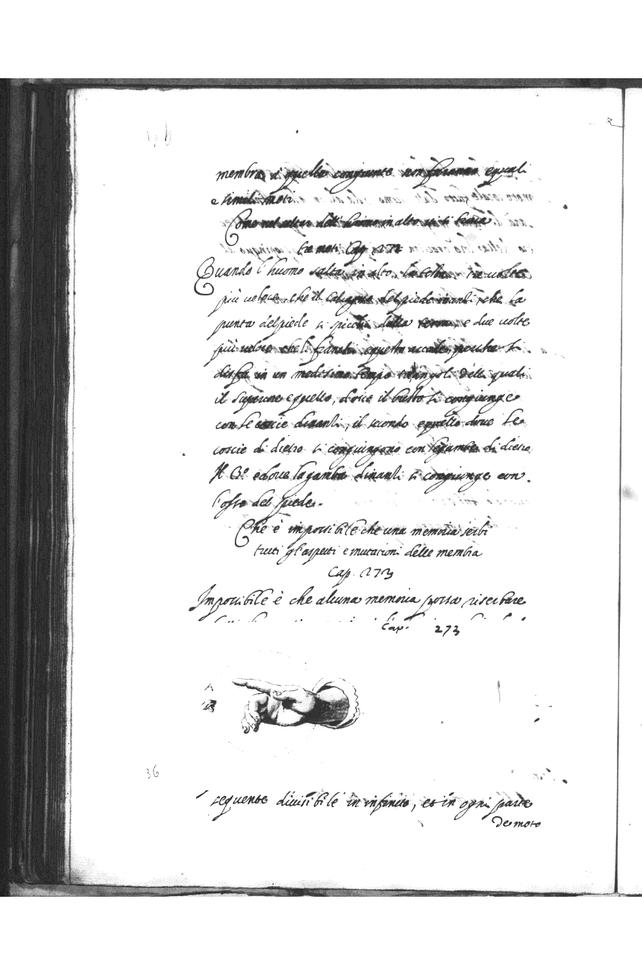 membra à quello congiunte non faranno equali
e simili moti.
Come nel saltar dell' huomo in alto vi si trova
tre moti. Cap. 272
Quando l'huomo salta in alto, la testa è tre volte
più veloce, che il calcagno del piede inanti, che la
punta del piede si spicchi dalla terra, e due volte
più veloce che li fianchi, e questo accade, perche si
disfà in un medesimo tempo tre angoli delli quali
il superiore è quello, dove il busto si congiunge
con le coscie dinanti, il secondo è quello dove le
coscie di dietro si congiungono con le gambe di dietro
Il 3.º è dove la gamba dinanti si congiunge con
l'osso del piede.
Che è impossibile che una memoria serbi
tutti gl'aspetti e mutationi delle membra
Cap. 273
Impossibile è che alcuna memoria possa riserbare
Cap. 273
36
seguente divisibile in infinito, et in ogni parte
De moto